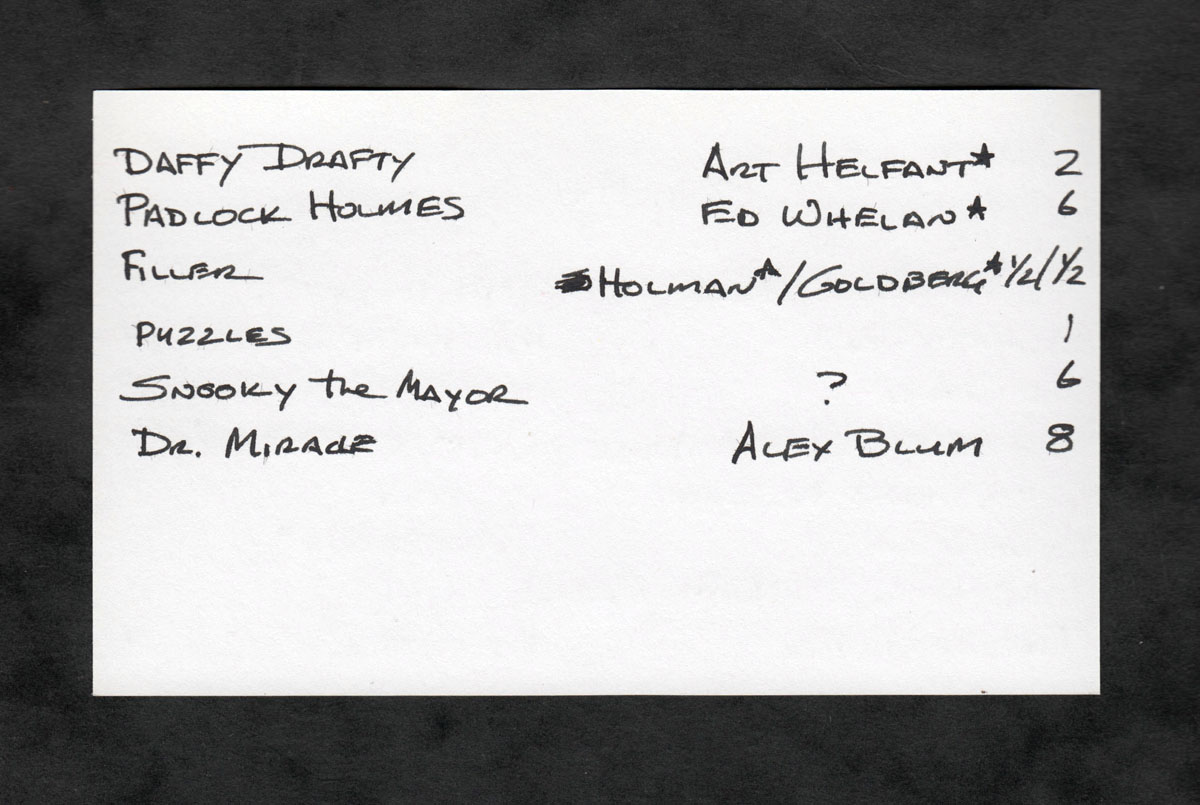 DAFFY DRAFTY ART HELFANT★ 2
PADLOCK HOLMES ED WHELAN★ 6
FILLER HOLMAN★/GOLDBERG★ 1/2/1/2
PUZZLES 1
SNOOKY the MAYOR ? 6
DR. MIRACLE ALEX BLUM 8